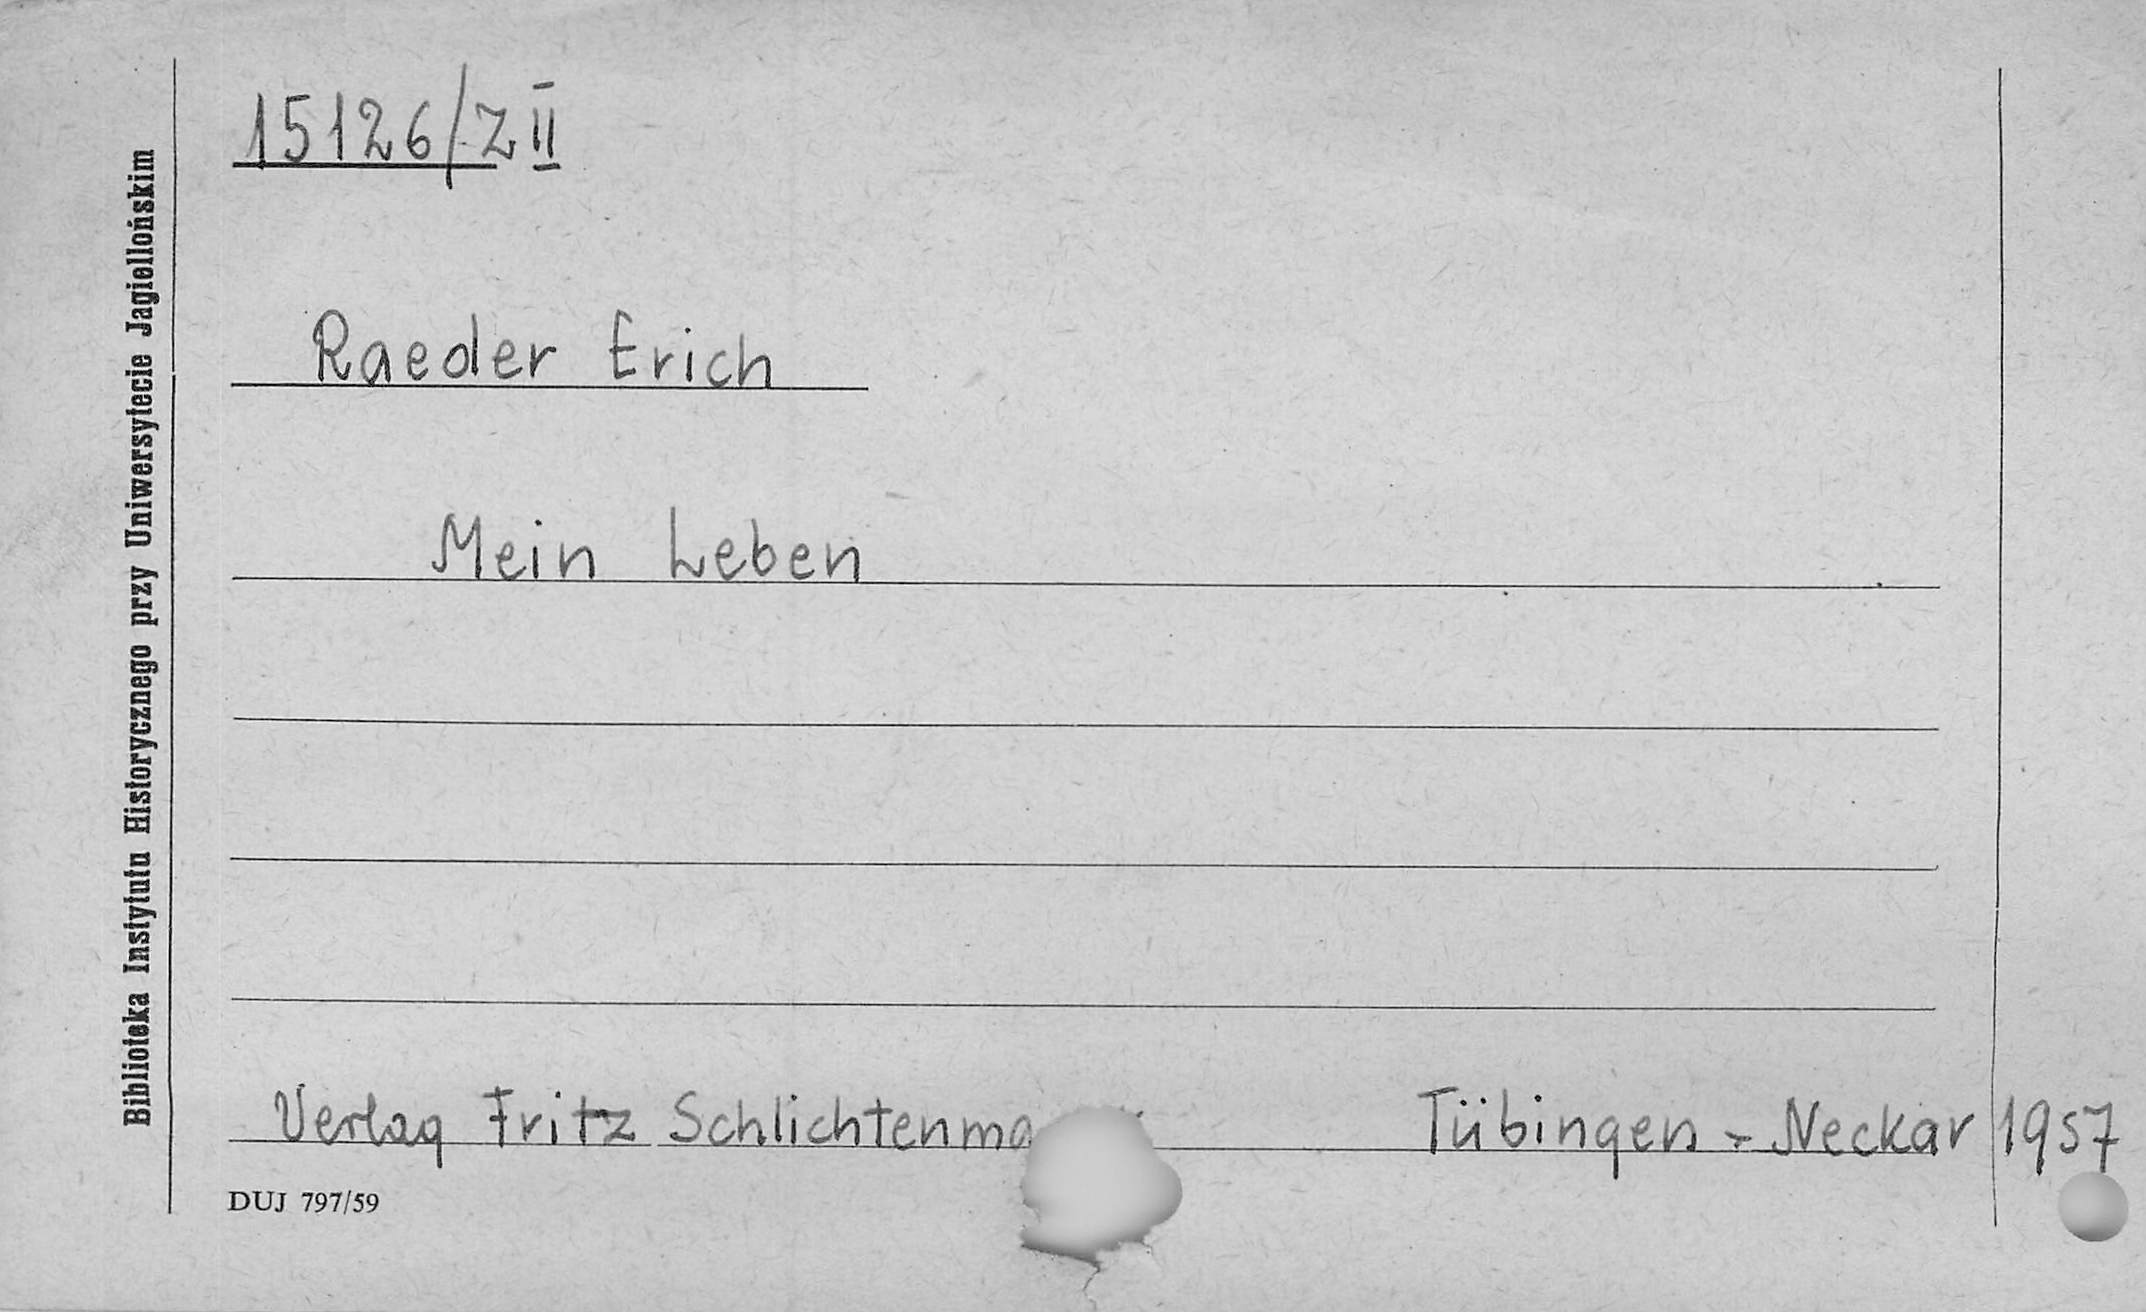 15126/Z II
Raeder Erich
Mein Leben
Verlag Fritz Tübingen - Neckar 1957
DUJ 797/59
Biblioteka Instytutu Historycznego przy Uniwersytecie Jagiellońskim